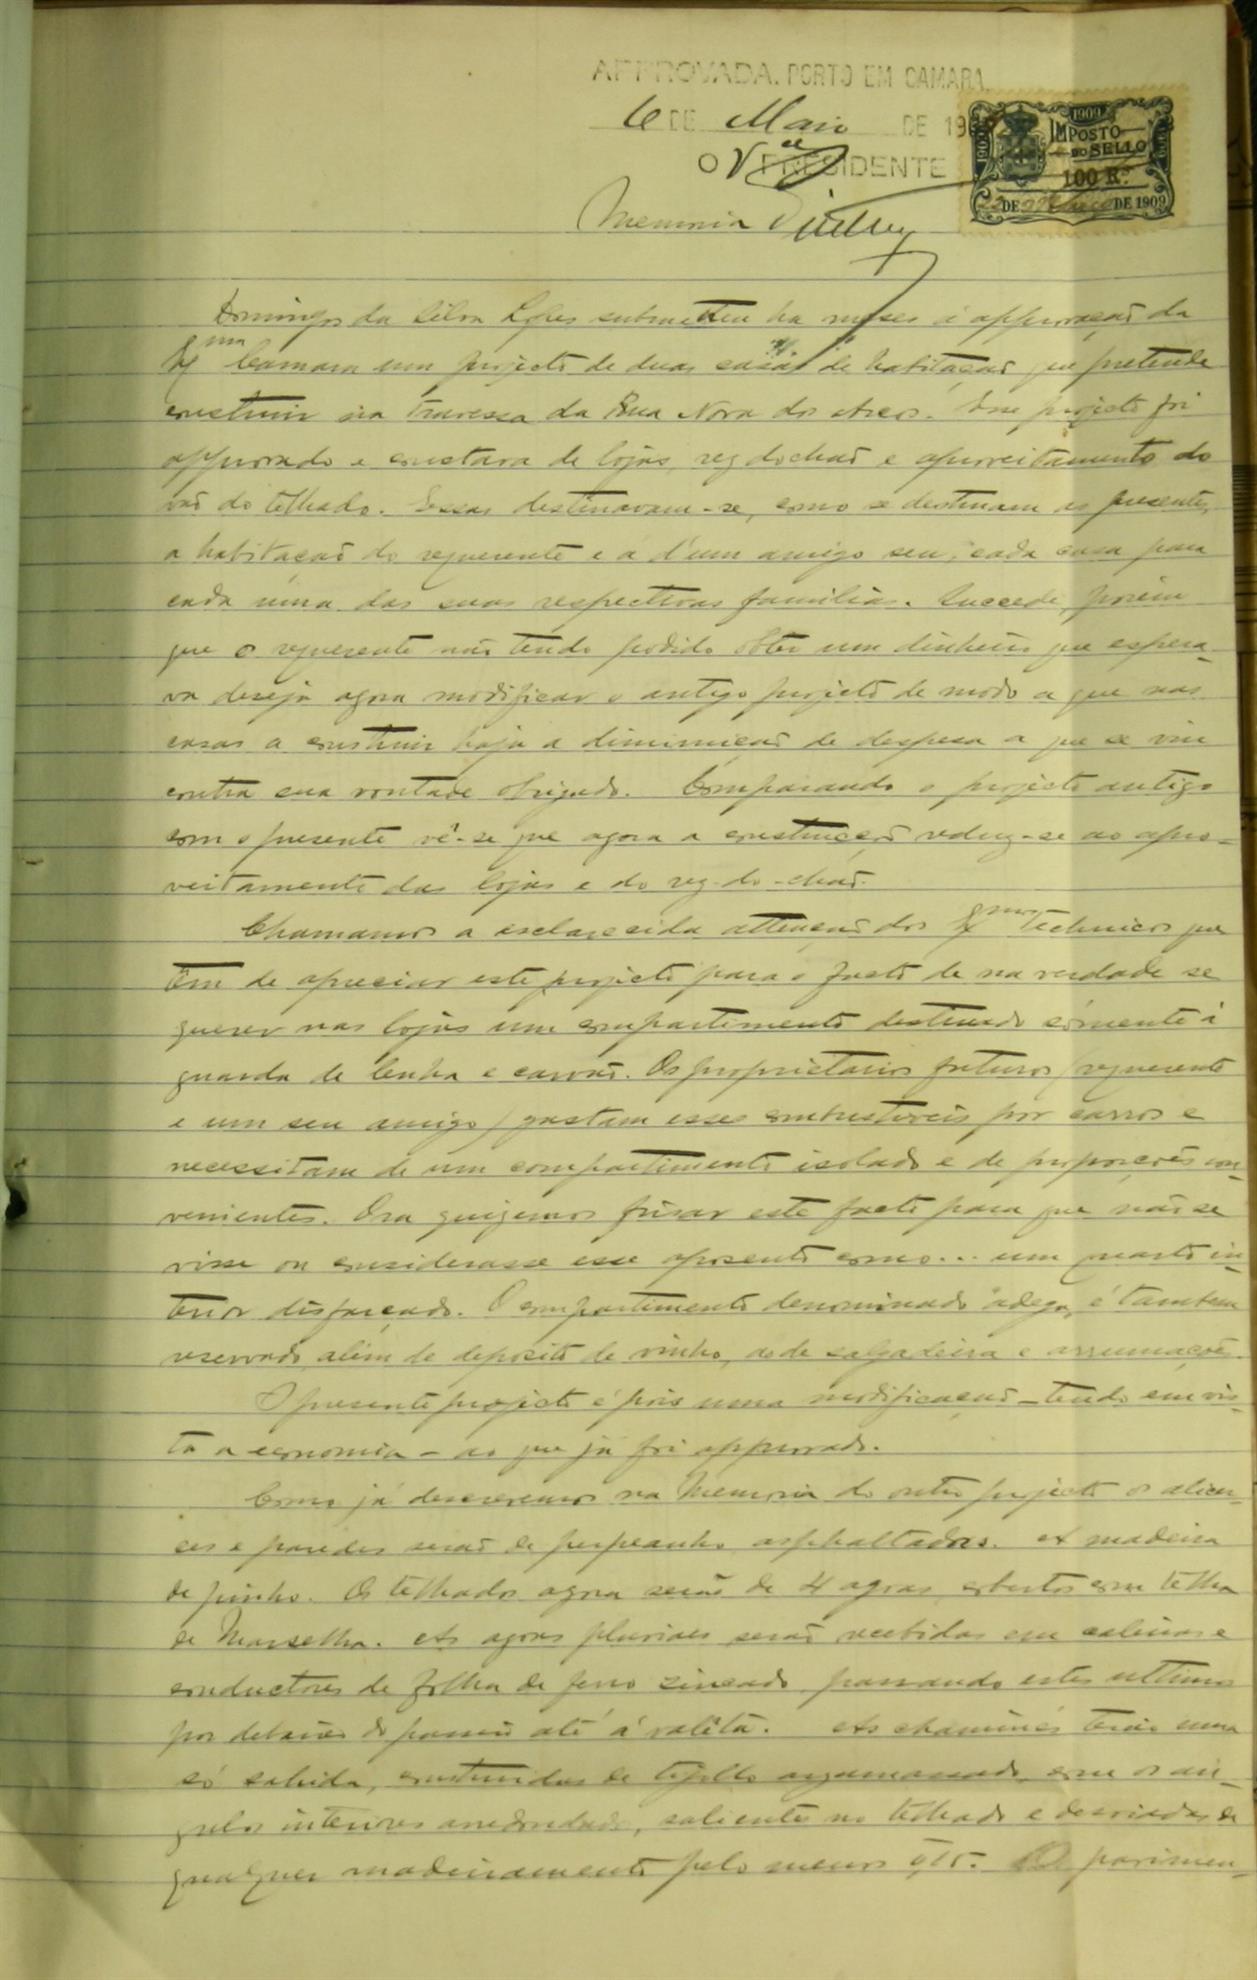 APPROVADA. PORTO EM CAMARA,
6 DE Maio DE 19
O V PRESIDENTE
1909
IMPOSTO
DO SELLO
100 Rs.
DE DE 1909
Memoria
Domingos da Silva Lopes submetteu ha mezes á approvação da
Exma Camara um projecto de duas casas de habitação que pretende
construir na Travessa da Rua Nova dos Arcos. Esse projecto foi
approvado e constava de lojas, rez do chão e aproveitamento do
vão do telhado. Essas destinavam-se, como se destinam as presentes,
a habitação do requerente e á d'um amigo seu, cada casa para
cada uma das suas respectivas familias. Succede, porém
que o requerente não tendo podido obter um dinheiro que espera-
va deseja agora modificar o antigo projecto de modo a que nas
casas a construir haja a diminuição de despesa a que se viu
contra sua vontade obrigado. Comparando o projecto antigo
com o presente vê-se que agora a construcção reduz-se ao apro-
veitamento das lojas e do rez-do-chão.
Chamamos a esclarecida attenção dos Exmos Technicos que
tem de apreciar este projecto para o facto de na verdade se
querer nas lojas um compartimento destinado sómente á
guarda de lenha e carvão. Os proprietarios futuros (requerente
e um seu amigo) gastam esses combustiveis por carros e
necessitam de um compartimento isolado e de proporções con-
venientes. Ora quizemos frisar este facto para que não se
visse ou considerasse esse aposento como... um quarto in-
terior disfarçado. O compartimento denominado "adega" é tambem
reservado, além de deposito de vinho, ao de salgadeira e arrumações.
O presente projecto é pois uma modificação - tendo em vis-
ta a economia - ao que já foi approvado.
Como já descrevemos na Memoria do outro projecto os alicer-
ces e paredes serão de perpeanho asphaltados. A madeira
de pinho. Os telhados agora serão de 4 agoas cobertos com telha
de Marselha. As agoas pluviaes serão recebidas em caleiras e
conductores de folha de ferro zincado, passando estes ultimos
por debaixo do passeio até á valêta. As chaminés terão uma
só sahida, construidas de tijollo argamassado com os an-
gulos interiores arredondados, saliente no telhado e desviadas de
qualquer madeiramento pelo menos 0,15. Os pavimen-